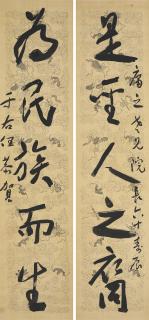 是聖人之裔
庸之兄院長六十壽辰
為民族而生
于右任恭賀